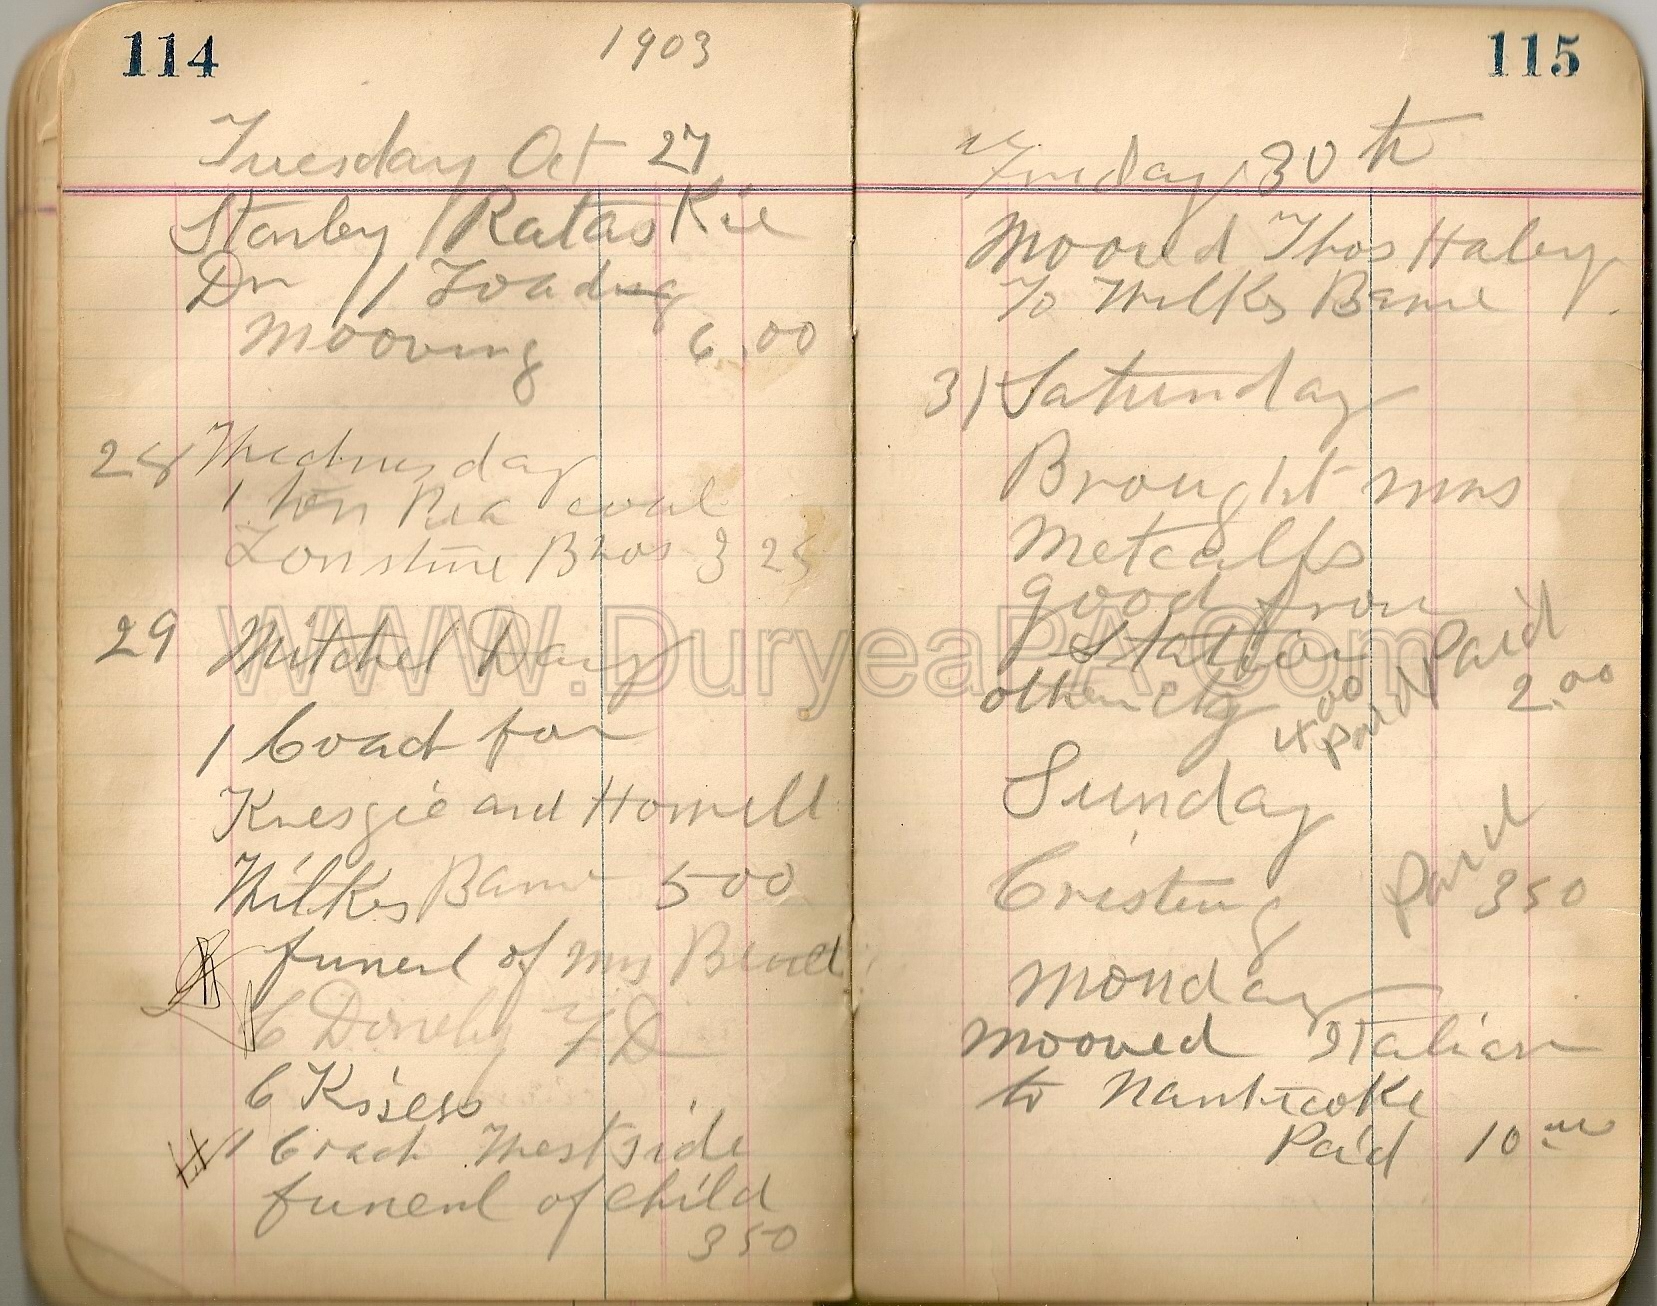 114
1903
Tuesday Oct 27
Stanley Rataskie
Dr 1 Loading
Mooving 6.00
28 Wednesday
1 ton Pea coal
Bros 3 25
29 Mitchel Day
1 Coach for
Kresgie and Howell
Wilkes Barre 500
funerl of Mrs
F D
C
1 Coach West side
funerl of child
350
115
Friday 30th
Mooved Thos Haley
To Wilkes Barre
31 Saturday
Brought mrs
Metcalfs
good from
Station Paid
2.00
4.00 paid
Sunday
Cristing Paid 350
Monday
mooved Italian
to Nanticoke
Paid 10
WWW.DuryeaPA.Com